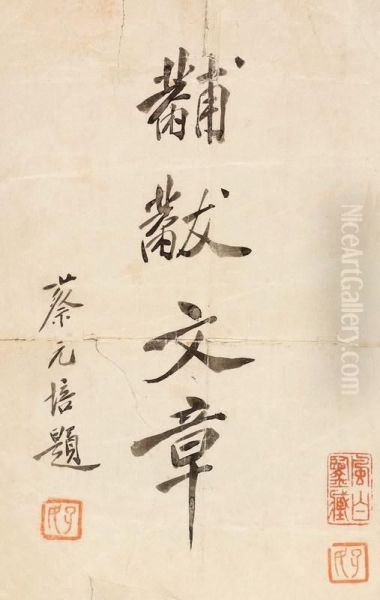 黼黻文章
蔡元培題
NiceArtGallery.com